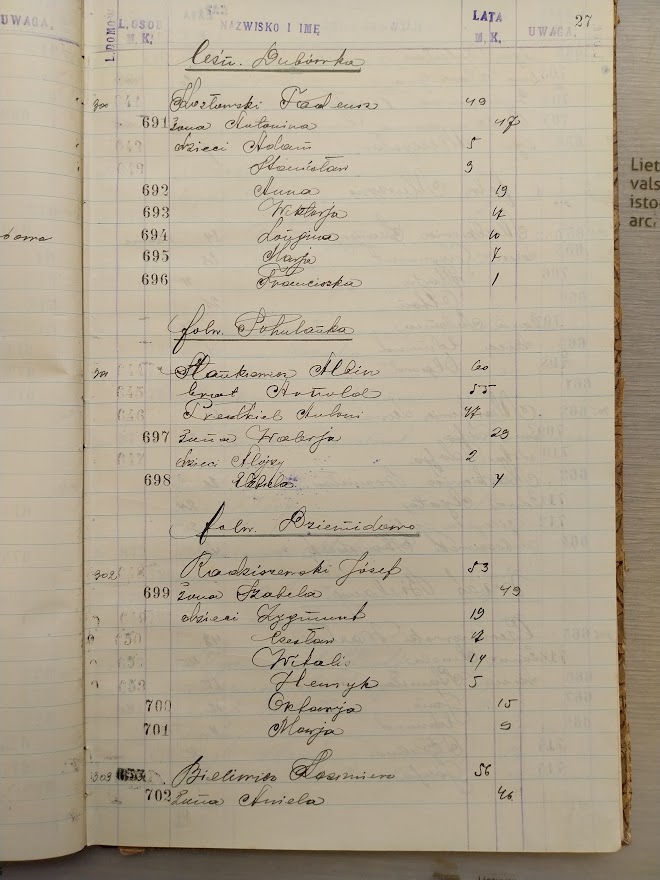 UWAGA.
L. DOMÓW L. OSÓB M. K. NAZWISKO I IMIĘ LATA M. K. UWAGA. 27
leśn. Dubówka
300 Kozłowski Tadeusz 49
691 żona Antonina 47
dzieci Adam 5
Stanisław 3
692 Anna 19
693 Wiktorja 17
694 Lucyna 10
695 Marja 7
696 Franciszka 1
folw. Pohulanka
301 Albin 60
brat Arnold 55
Antoni 47
697 żona Walerja 29
dzieci Alojzy 2
698 7
folw. Dziemidowo
302 Radziszewski Józef 53
699 żona Izabela 49
dzieci Zygmunt 19
Czesław 17
Witalis 14
Henryk 5
700 Oktawja 15
701 Marja 9
303 Kazimierz 56
702 żona Aniela 46
Liet
vals
isto
arc.